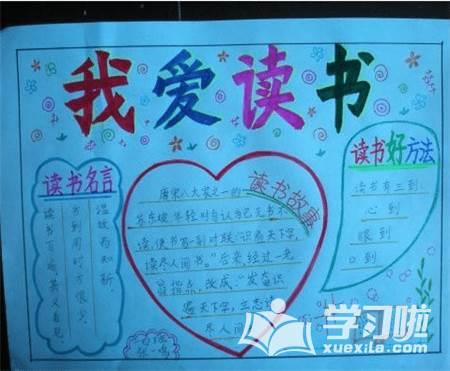 我爱读书
读书名言
温故而知新。
书到用时方恨少
读书百遍其义自见。
读书故事
唐宋八大家之一的
苏东坡年轻时自认为已无书不
读,便书写一副对联"识遍天下字,
读尽人间书。"后来经过一老
翁指点,改成:"发奋识
遍天下字,立志
尽人间
读书好方法
读书有三到:
心到
眼到
口到
学习啦
xuexila.com